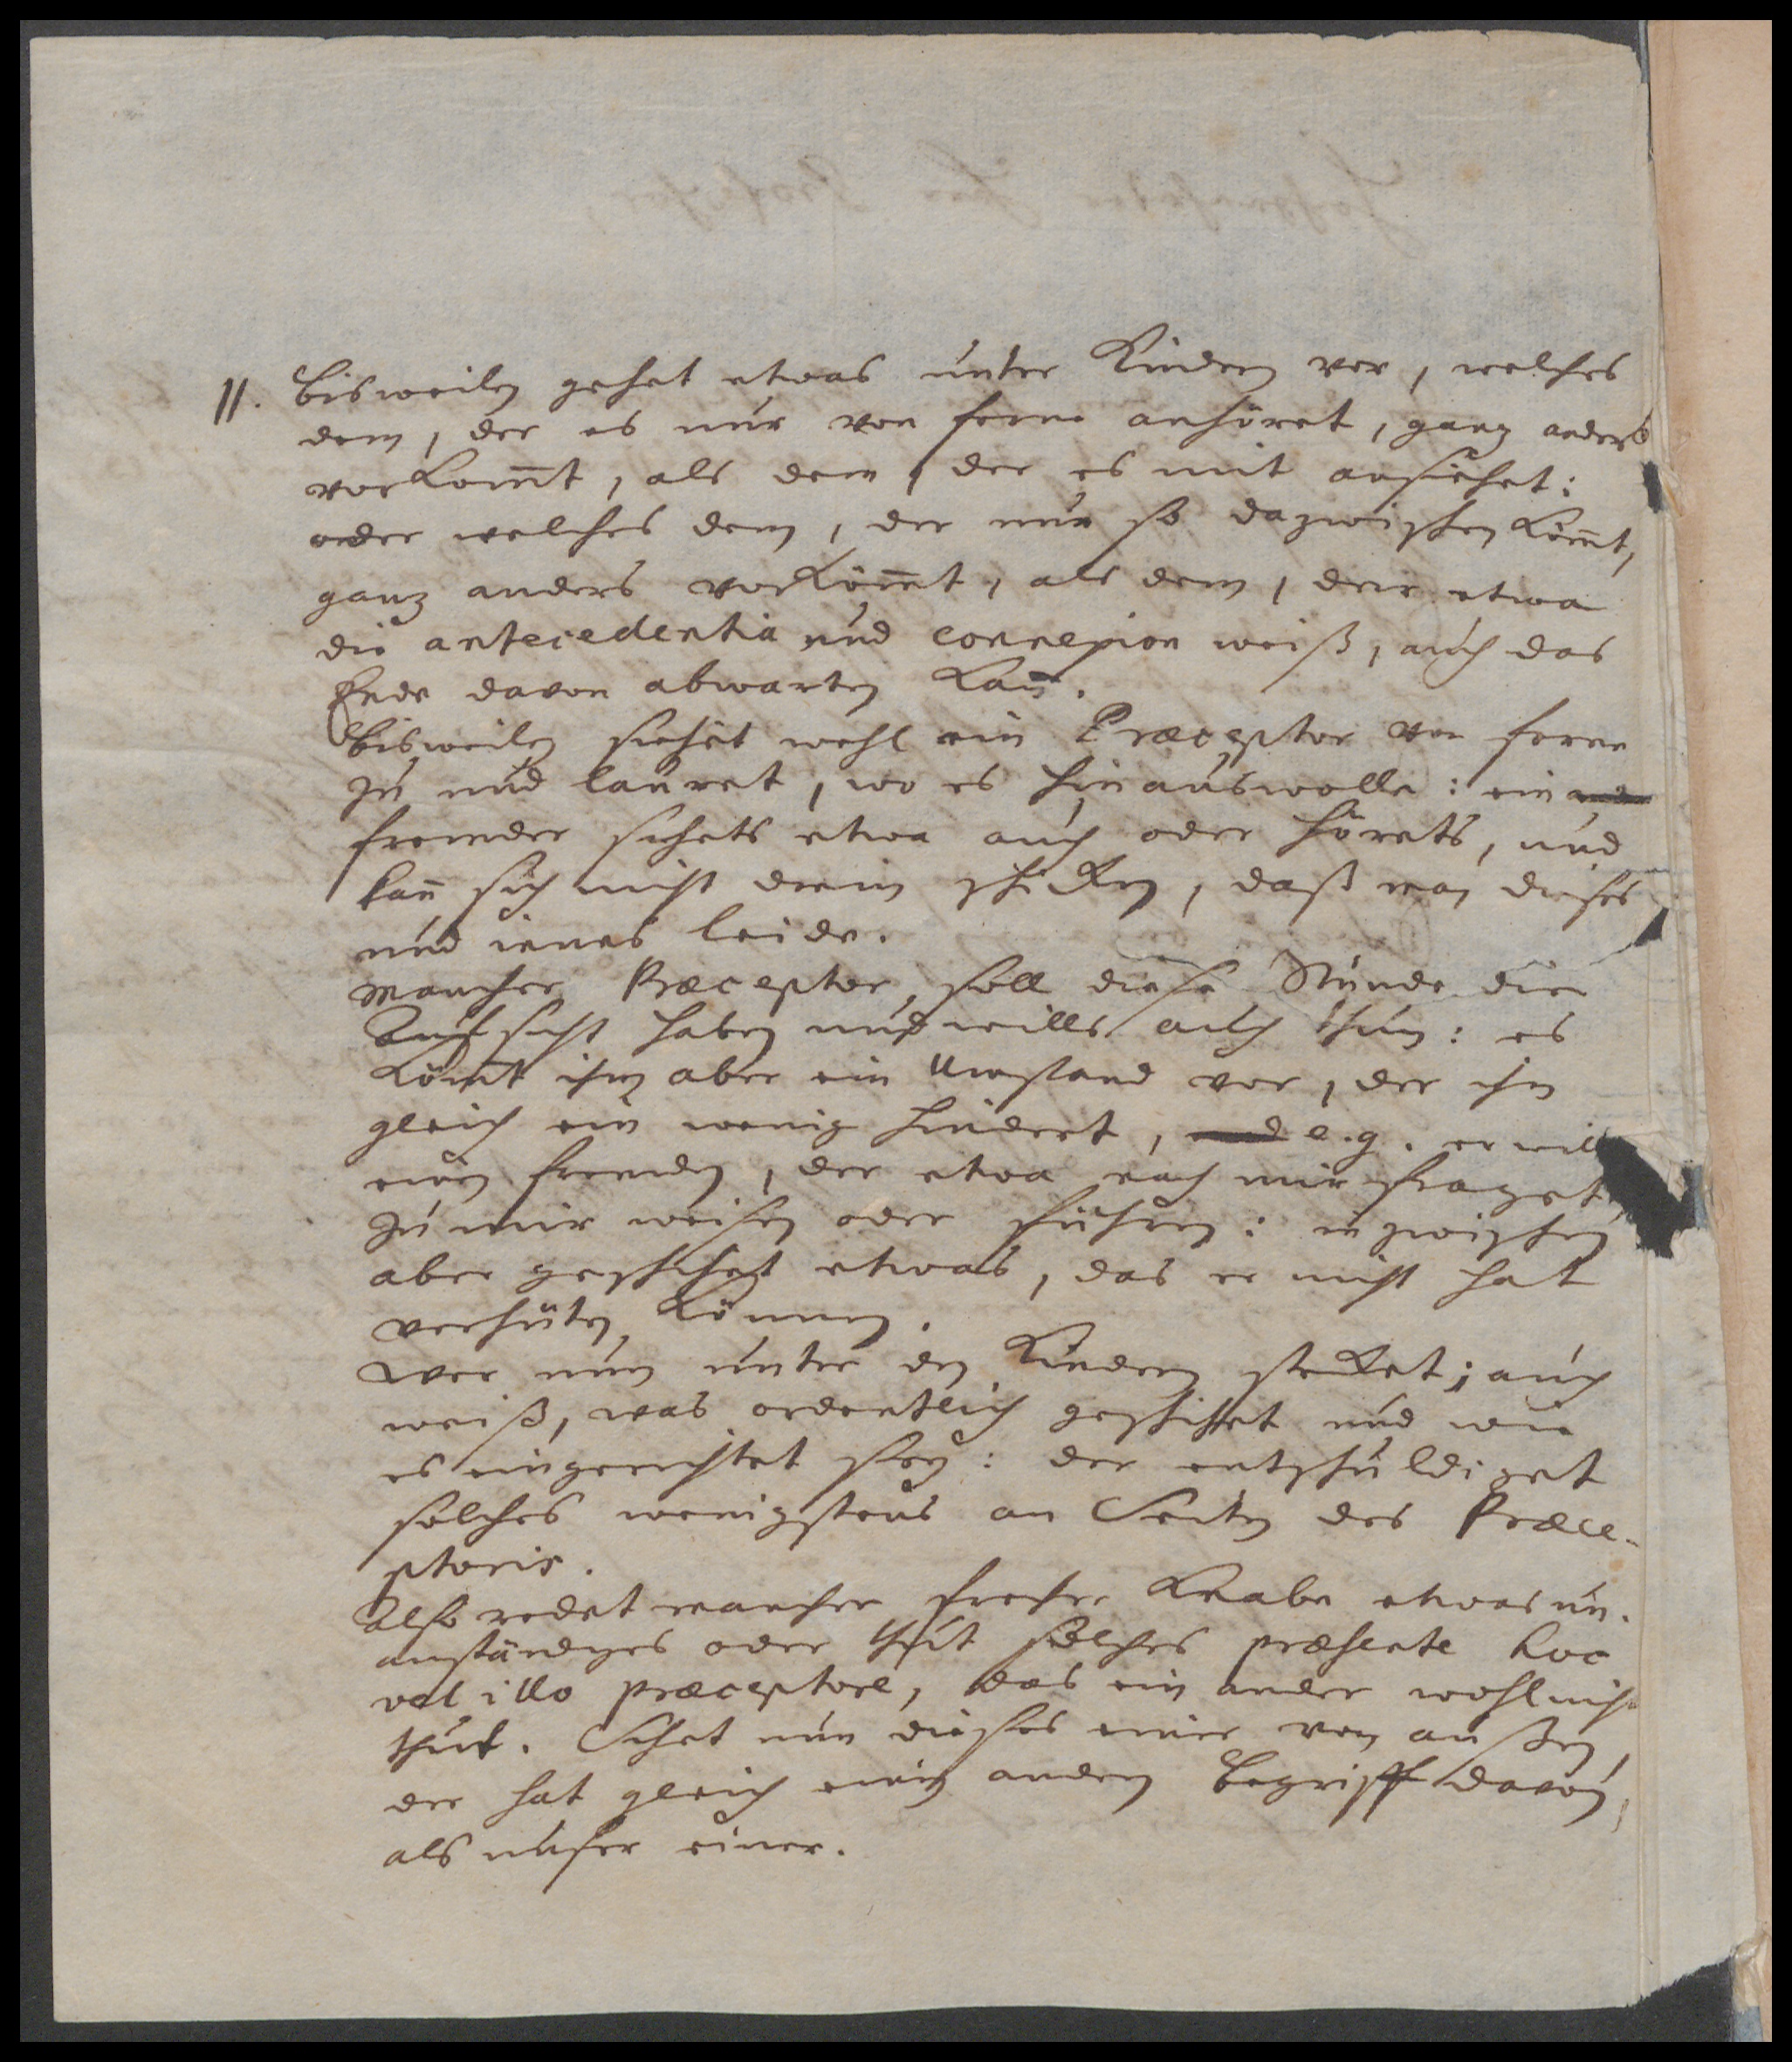 11. Bisweilen gehet etwas unter Kindern vor, welches
dem, der es nur von ferne anhöret, ganz anders
vorkom̅t, als dem, der es mit ansiehet:
oder welches dem, der nur so dazwischen köm̅t,
ganz anders vorköm̅t, als dem, der etwa
die antecedentia und connexion weiß, auch das
Ende davon abwarten kan̅.
Bisweilen siehet wohl ein Præceptor von ferne
zu und lauret, wo es hinauswolle: ein
fremder sihets etwa auch oder hörets, und
kan̅ sich nicht drein schicken, daß man dieses
und jenes leide.
Mancher Præceptor soll diese Stunde die
Aufsicht haben und wills auch thun: es
köm̅t ihm aber ein Umstand vor, der ihn
gleich ein wenig hindert, e.g. er will
einen fremden, der etwa nach mir fraget
zu mir weisen oder führen: inzwischen
aber geschihet etwas, das er nicht hat
verhüten können.
Wer nun unter den Kindern stecket; auch
weiß, was ordentlich geschihet und wie
es eingerichtet sey: der entschuldiget
solches wenigstens an Seiten des Præce-
ptoris.
Also redet mancher frecher Knabe etwas un-
anständiges oder thut solches præsente hoc
vel illo præceptore, das ein ander wohl nicht
thut. Sihet nun dieses einer von außen,
der hat gleich einen andern Begriff davon,
als unser einer.